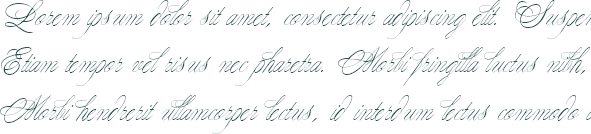 Lorem ipsum dolor sit amet, consectetur adipiscing elit. Suspen
Etiam tempor vel risus nec pharetra. Morbi fringilla luctus nibh,
Morbi hendrerit ullamcorper lectus, id interdum lectus commodo